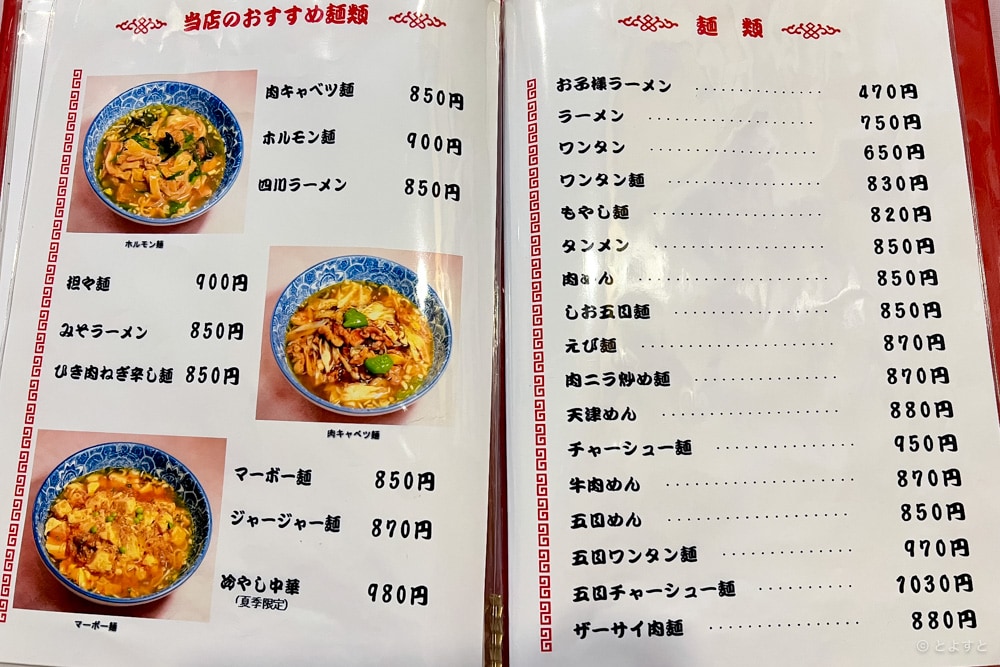 当店のおすすめ麺類
肉キャベツ麺 850円
ホルモン麺 900円
四川ラーメン 850円
ホルモン麺
担々麺 900円
みそラーメン 850円
ひき肉ねぎ辛し麺 850円
肉キャベツ麺
マーボー麺 850円
ジャージャー麺 870円
冷やし中華 980円
(夏季限定)
マーボー麺
麺類
お子様ラーメン 470円
ラーメン 750円
ワンタン 650円
ワンタン麺 830円
もやし麺 820円
タンメン 850円
肉めん 850円
しお五目麺 850円
えび麺 870円
肉ニラ炒め麺 870円
天津めん 880円
チャーシュー麺 950円
牛肉めん 870円
五目めん 850円
五目ワンタン麺 970円
五目チャーシュー麺 1030円
ザーサイ肉麺 880円
© とよすと